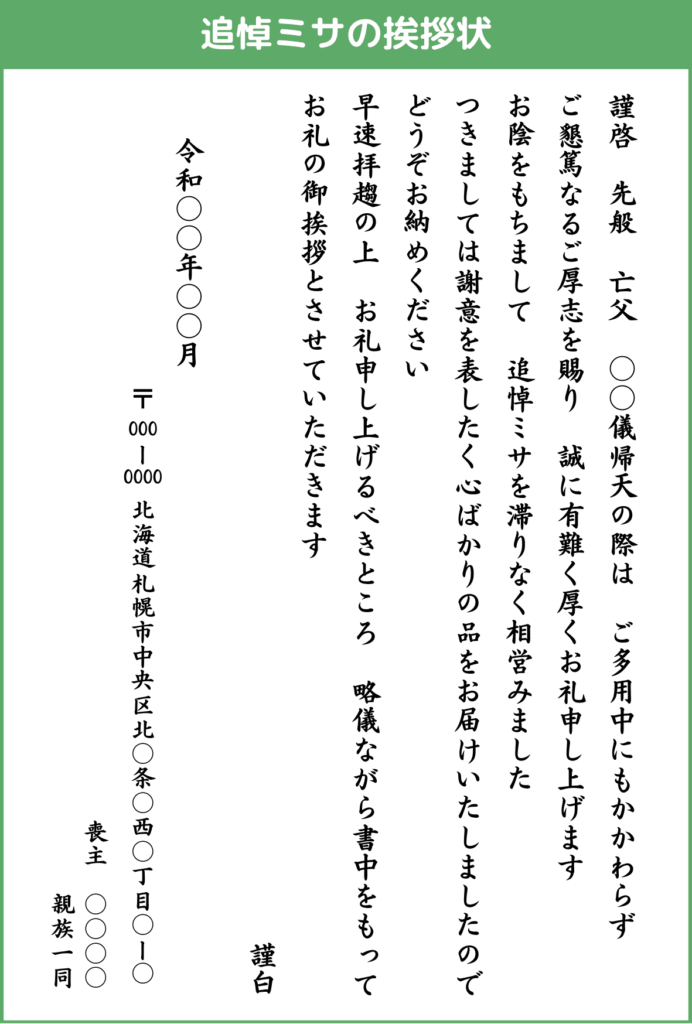 追悼ミサの挨拶状
謹啓　先般　亡父　〇〇儀帰天の際は　ご多用中にもかかわらず
ご懇篤なるご厚志を賜り　誠に有難く厚くお礼申し上げます
お陰をもちまして　追悼ミサを滞りなく相営みました
つきましては謝意を表したく心ばかりの品をお届けいたしましたので
どうぞお納めください
早速拝趨の上　お礼申し上げるべきところ　略儀ながら書中をもって
お礼の御挨拶とさせていただきます
謹白
令和〇〇年〇〇月
〒000ー0000 北海道札幌市中央区北〇条〇西〇丁目〇ー〇
喪主　〇〇〇〇
親族一同